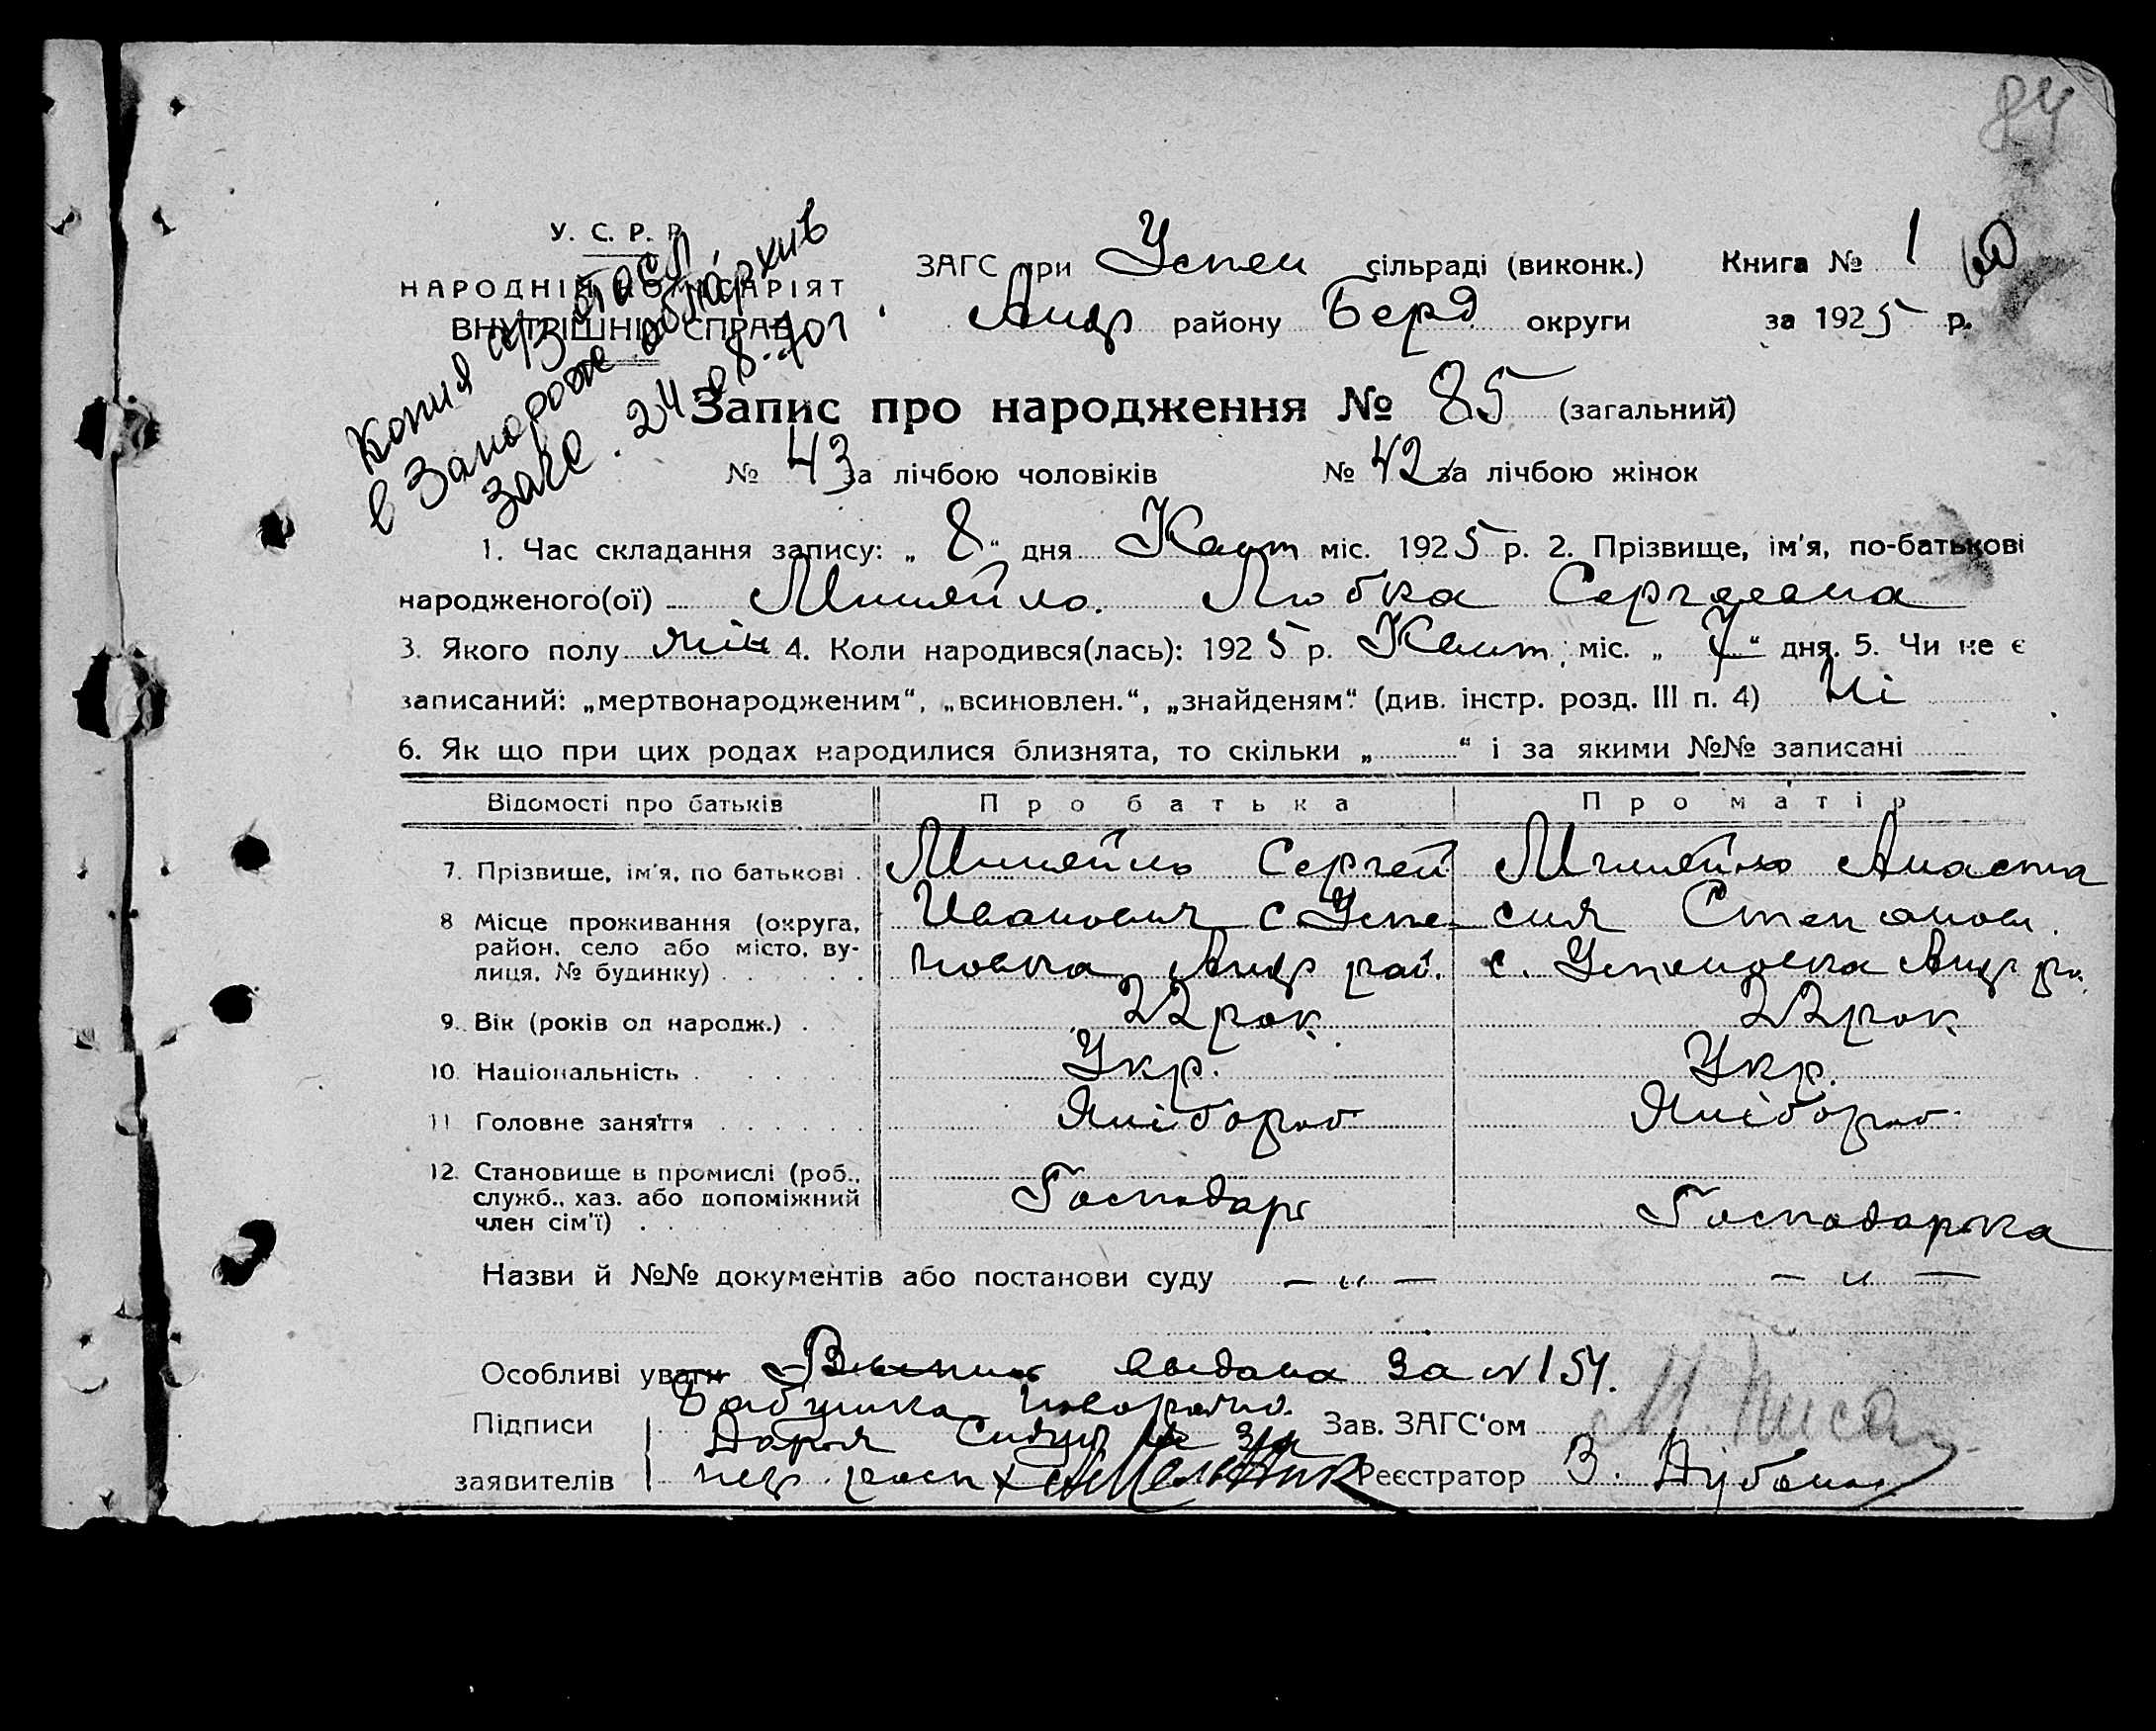 84
У. С. Р. Р.
НАРОДНІЙ КОМІСАРІЯТ
ВНУТРІШНІХ СПРАВ
Копия
в Запорож облархив
загс. 24.8.70г
ЗАГС при Успен сільраді (виконк.) Книга № 1
Андр району Берд округи за 1925 р.
Запис про народження № 85 (загальний)
№ 43 за лічбою чоловіків № 42 за лічбою жінок
1. Час складання запису: „ 8 “ дня Квит міс. 1925 р. 2. Прізвище, ім'я, по-батькові
народженого(ої) Миняйло. Любка Сергеевна
3. Якого полу жін 4. Коли народився(лась): 1925 р. Квит, міс. „ 7 “ дня. 5. Чи не є
записаний: „мертвонародженим“, „всиновлен.“, „знайденям“. (див. інстр. розд. III п. 4) Ні
6. Як що при цих родах народилися близнята, то скільки „ “ і за якими №№ записані
Відомості про батьків Про батька Про матір
7. Прізвище, ім'я, по батькові . Миняйло Сергей Миняйло Анаста
8 Місце проживання (округа, район, село або місто, вулиця, № будинку) Иванович с. Успе- сия Степанов.
новка Андр рай. с. Успеновка Андр ра.
9. Вік (років од народж.) . 22 рок. 22 рок.
10. Національність Укр. Укр.
11 Головне заняття Хлібороб Хлібороб
12. Становище в промислі (роб., служб., хаз. або допоміжний член сім'ї) Господарь Господарка
Назви й №№ документів або постанови суду — „ — — „ —
Особливі уваги Выпись выдана за № 154.
Підписи Бабушка
Дарья
заявителів Мельник
Зав. ЗАГС'ом
Реєстратор В.